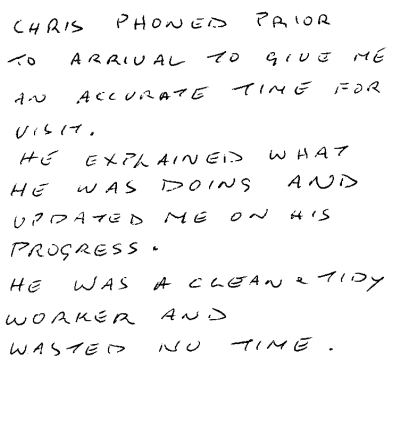 CHRIS PHONED PRIOR
TO ARRIVAL TO GIVE ME
AN ACCURATE TIME FOR
VISIT.
HE EXPLAINED WHAT
HE WAS DOING AND
UPDATED ME ON HIS
PROGRESS.
HE WAS A CLEAN & TIDY
WORKER AND
WASTED NO TIME.